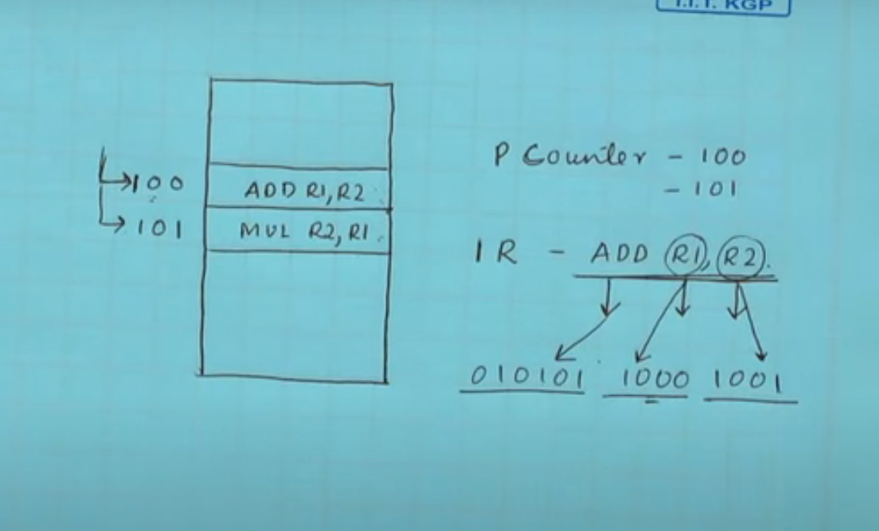 I.I.T. KGP
100 ADD R1, R2
101 MUL R2, R1.
P Counter - 100
- 101
IR - ADD R1, R2.
010101 1000 1001